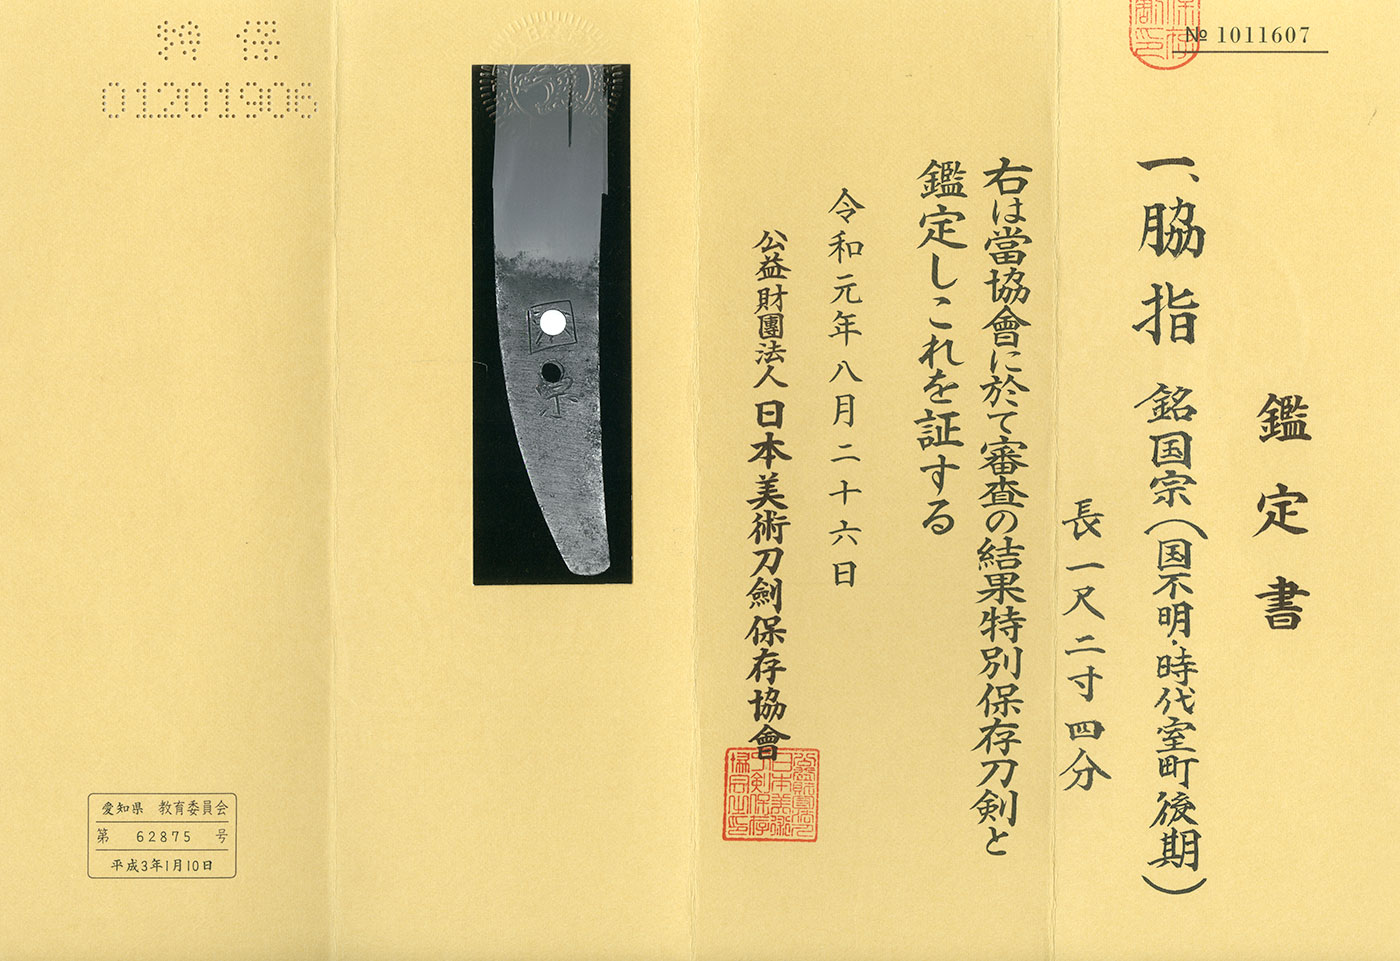 № 1011607
鑑定書
一、脇指 銘国宗(国不明・時代室町後期)
長一尺二寸四分
右は當協會に於て審査の結果特別保存刀剣と
鑑定しこれを証する
令和元年八月二十六日
公益財團法人 日本美術刀劍保存協會
国宗
特保
01201906
愛知県 教育委員会
第 62875 号
平成3年1月10日